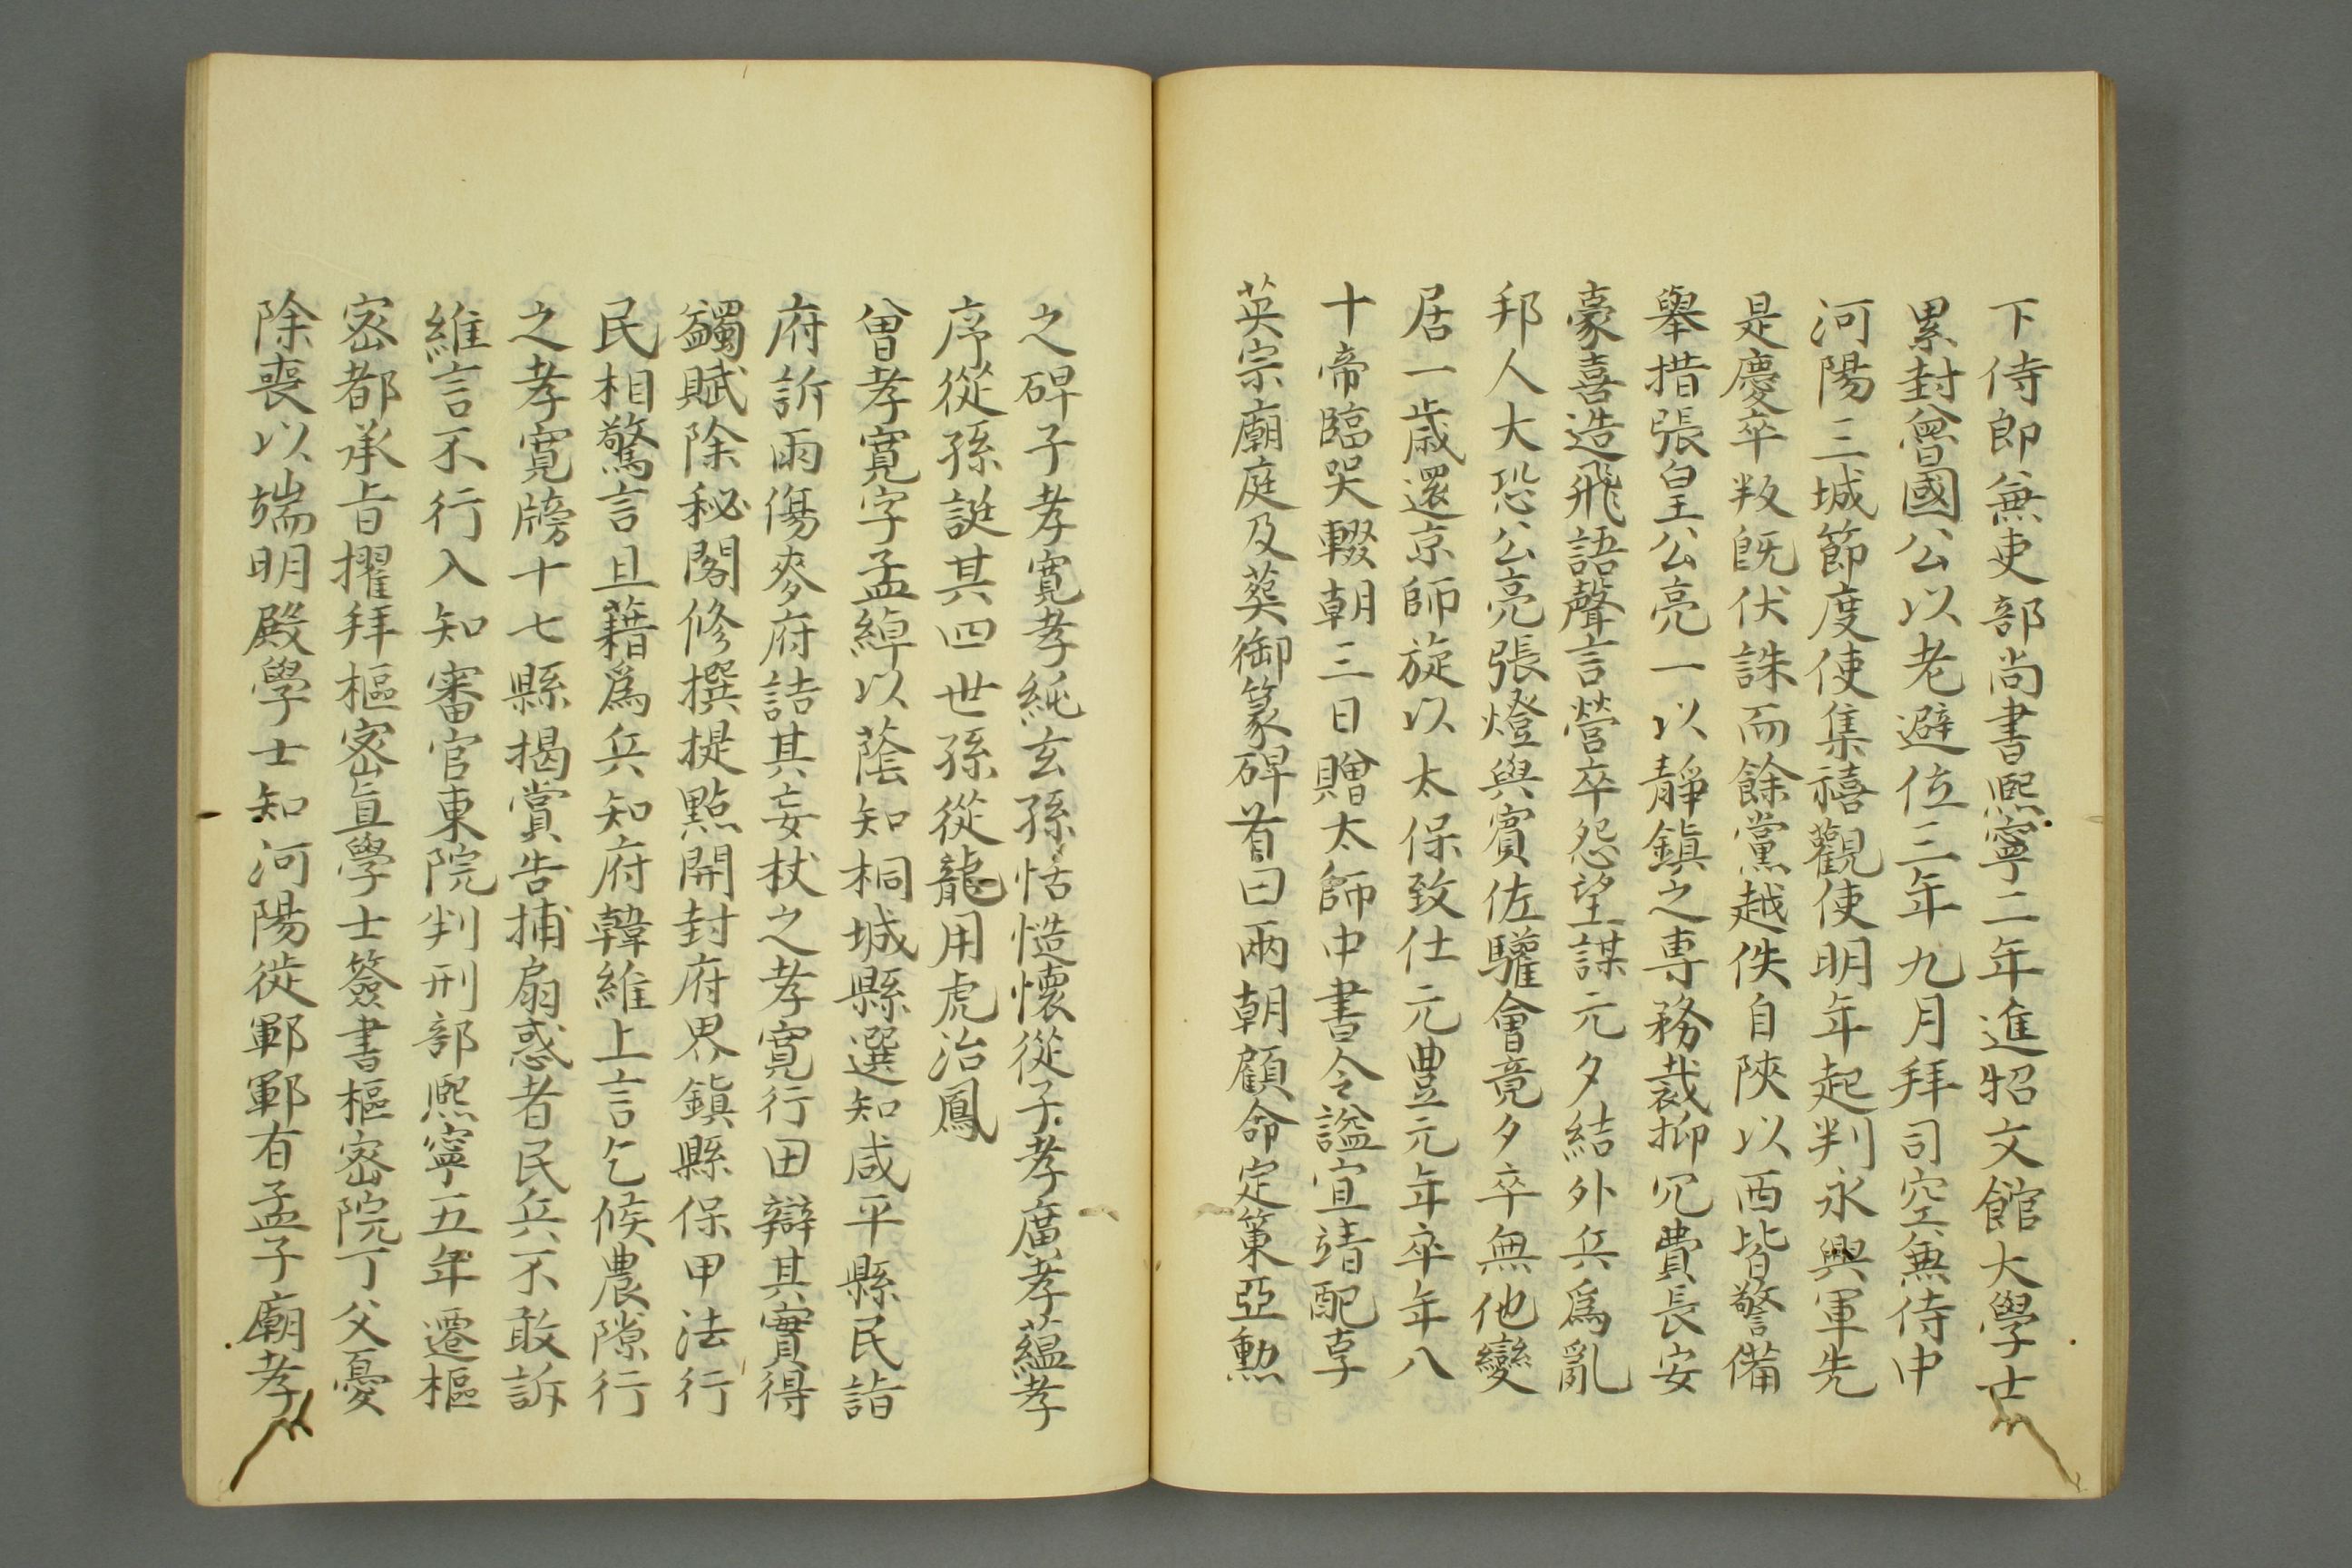 下侍郎兼吏部尚書熙寧二年進昭文館大學士
累封魯國公以老避位三年九月拜司空兼侍中
河陽三城節度使集禧觀使明年起判永興軍先
是慶卒叛旣伏誅而餘黨越佚自陝以西皆警備
舉措張皇公亮一以靜鎮之專務裁抑冗費長安
豪喜造飛語聲言營卒怨望謀元夕結外兵爲亂
邦人大恐公亮張燈與賓佐驩會竟夕卒無他變
居一歲還京師旋以太保致仕元豐元年卒年八
十帝臨哭輟朝三日贈太師中書令諡宣靖配享
英宗廟庭及葬御篆碑首曰兩朝顧命定策亞勲
之碑子孝寬孝純玄孫恬慥懷從子孝廣孝藴孝
序從孫誕其四世孫從龍用虎治鳳
曾孝寬字孟綽以蔭知桐城縣選知咸平縣民詣
府訴雨傷麥府詰其妄杖之孝寬行田辯其實得
蠲賦除秘閣修撰提點開封府界鎮縣保甲法行
民相驚言且藉爲兵知府韓維上言乞候農隙行
之孝寬牓十七縣揭賞告捕扇惑者民兵不敢訴
維言不行入知審官東院判刑部熙寧五年遷樞
密都承旨擢拜樞密直學士簽書樞密院丁父憂
除喪以端明殿學士知河陽徙鄆鄆有孟子廟孝